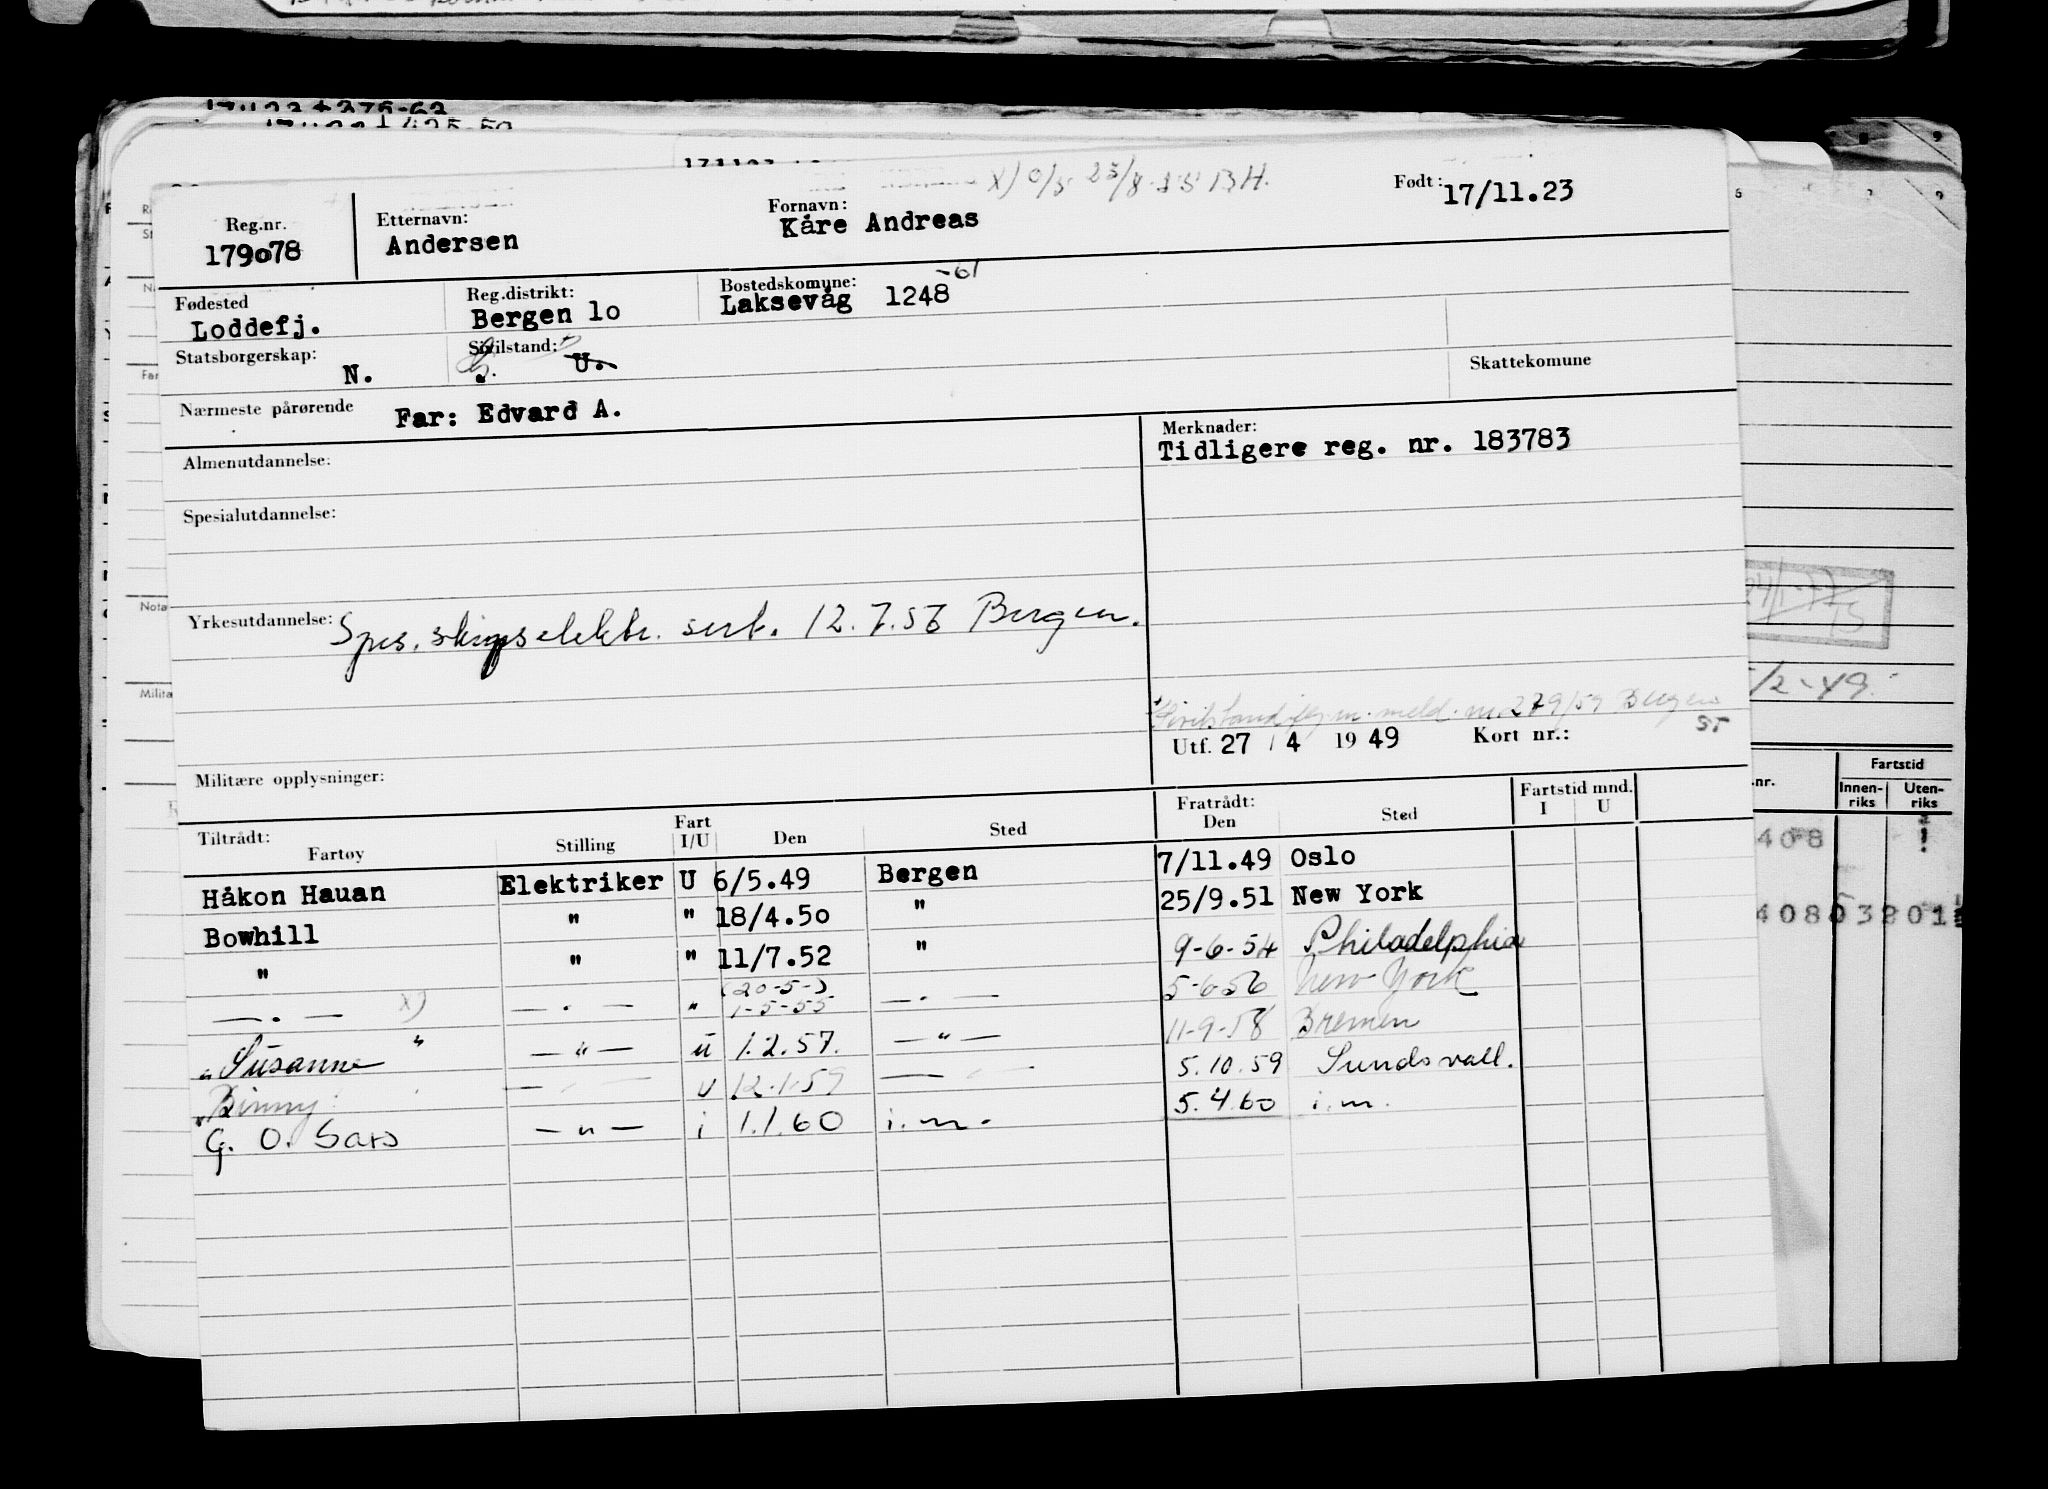 X) 0/5 25/8-55 BH.
Reg.nr. Etternavn: Fornavn: Født: 17/11.23
179o78 Andersen Kåre Andreas
Fødested Reg.distrikt: Bostedskomune: -61
Loddefj. Bergen 1o Laksevåg 1248
Statsborgerskap: Sivilstand: Skattekomune
N. U.
Nærmeste pårørende Far: Edvard A.
Merknader:
Tidligere reg. nr. 183783
Almenutdannelse:
Spesialutdannelse:
Yrkesutdannelse: Spes. skipselektr. sert. 12.7.56 Bergen.
meld. nr. 279/59 Bergen
ST
Utf. 27 / 4 19 49 Kort nr.:
Militære opplysninger:
Tiltrådt: Fratrådt: Fartstid mnd.
Fartøy Stilling Fart I/U Den Sted Den Sted I U
Håkon Hauan Elektriker U 6/5.49 Bergen 7/11.49 Oslo
Bowhill " " 18/4.5o " 25/9.51 New York
" " " 11/7.52 " 9-6-54 Philadelphia
(20-5-)
— . — X) — . — " 1-5-55 — . — 5-6-56 New York
"Susanne" — " — u 1.2.57. — " — 11-9-58 Bremen
"Binny" — — u 12.1.59 — — 5.10.59 Sundsvall.
G. O. Sars — " — i 1.1.60 i.m. 5.4.60 i.m.
nr. Fartstid
Innen-riks Uten-riks
408
40803201
/2-49